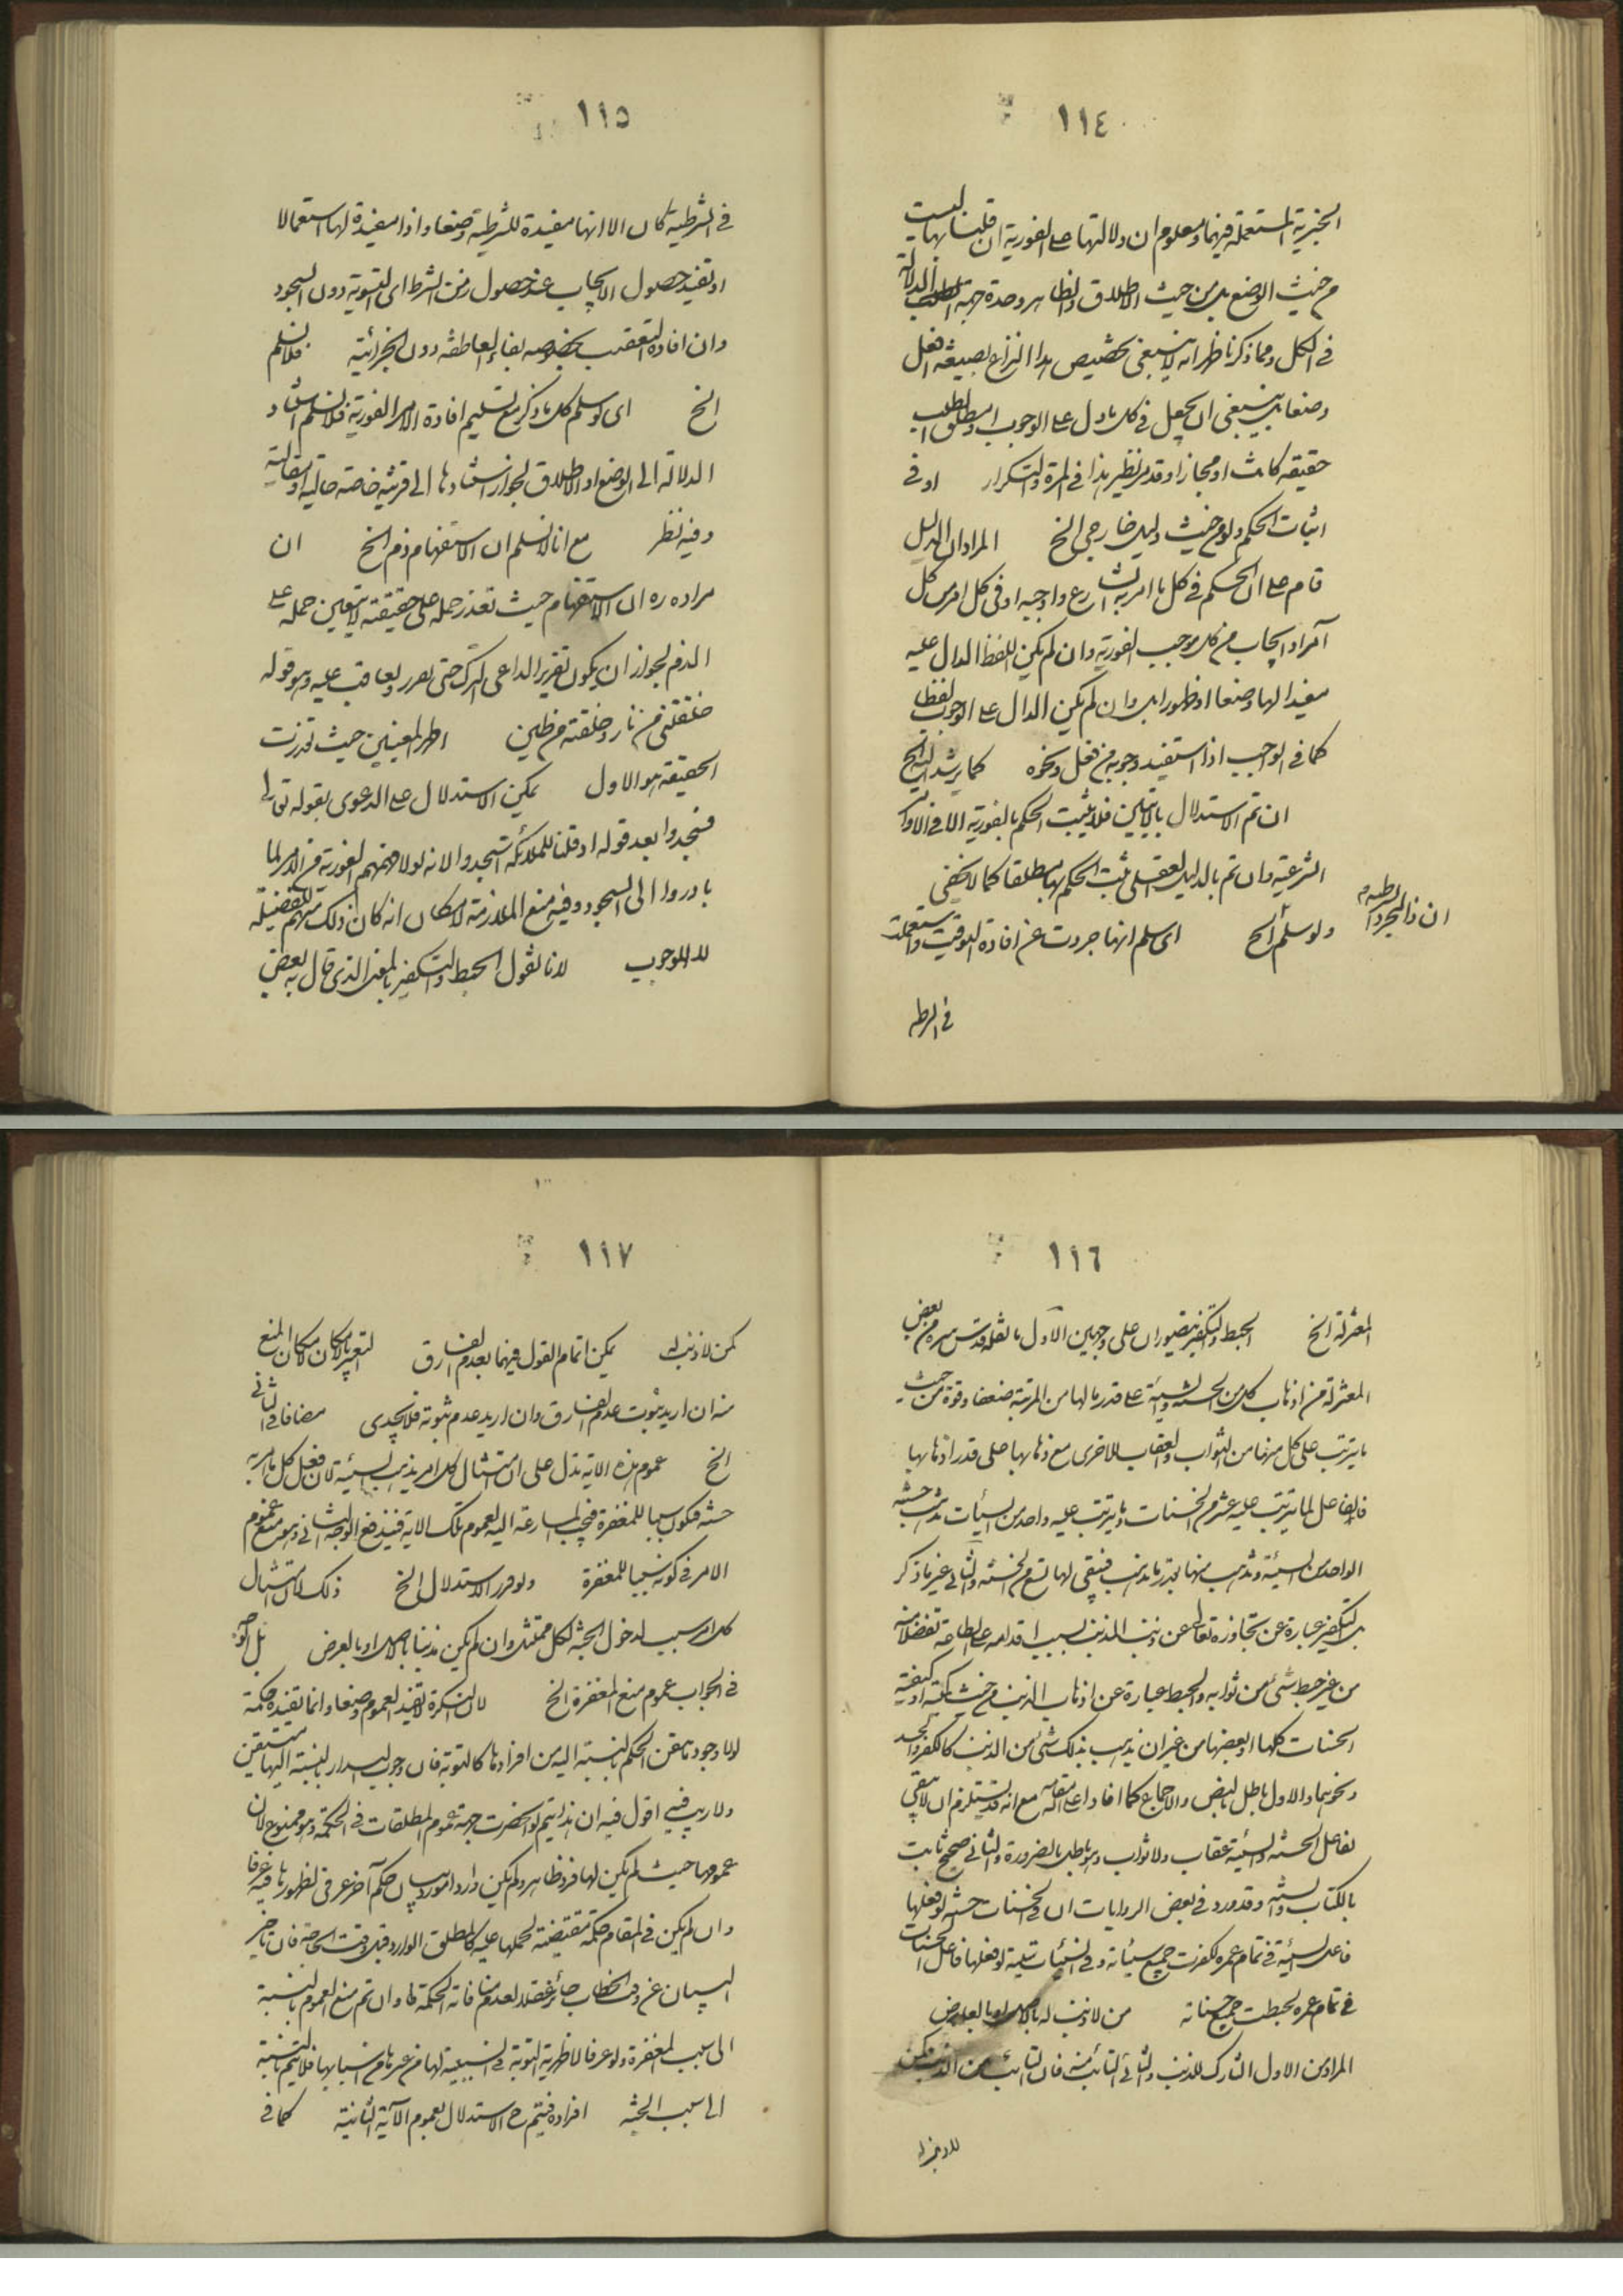 ١١٤
الخبرية المستعملة فيهما ومعلوم ان دلالتها على الفورية ان قلنا بها ليست
من حيث الوضع بل من حيث الاطلاق والظاهر وحدة جهة الدلالة
في الكل ومما ذكرنا ظهر انه لا ينبغي تخصيص هذا النزاع بصيغة افعل
وضعا بل ينبغي ان يجعل في كل ما دل على الوجوب او مطلق الطلب
حقيقة كانت او مجازا وقد مر نظير هذا في المرة والتكرار او في
اثبات الحكم ولو من حيث دليل خارجي الخ المراد ان الدليل
قام على ان الحكم في كل ما امر به الشارع واوجبه او في كل امر من كل
آمر او ايجاب من كل موجب الفورية وان لم يكن اللفظ الدال عليه
مفيدا لها وضعا او ظهورا بل وان لم يكن الدال على الوجوب لفظا
كما في الواجب اذا استفيد وجوبه من فعل ونحوه كما يرشد اليه الخ
ان تم الاستدلال بالآيتين فلا يثبت الحكم بالفورية الا في الاوامر
الشرعية وان تم بالدليل العقلي ثبت الحكم بها مطلقا كما لا يخفى
ولو سلم الخ اى سلم انها جردت عن افادة التوقيت واستعملت
ان ذا لمجرد
١١٥
في الشرطية كان الا انها مفيدة للشرطية وضعا واذا مفيدة لها استعمالا
او تفيد حصول الايجاب عند حصول زمن الشرط اى التسوية دون السجود
وان افادة التعقيب بخصوصه بفاء العاطفة دون الجزائية فلا نسلم
الخ اى لو سلم كل ما ذكر مع تسليم افادة الامر الفورية فلا نسلم استناد
الدلالة الى الوضع او الاطلاق لجواز استنادها الى قرينة خاصة حالية او مقالية
وفيه نظر مع انا لا نسلم ان الاستفهام ذم الخ ان
مراده ره ان الاستفهام حيث تعذر حمله على حقيقته لا يتعين حمله على
الذم لجواز ان يكون تقرير الداعى الترك حتى يعرر ويعاقب عليه وهو قوله
خلقتني من نار وخلقته من طين اظهر المعنيين حيث تعذرت
الحقيقة هو الاول يمكن الاستدلال على الدعوى بقوله تعالى
فسجدوا بعد قوله اذ قلنا للملائكة اسجدوا لانه لولا فهمهم الفورية من الامر لما
بادروا الى السجود وفيه منع الملازمة لامكان انه كان ذلك منهم للفضيلة
لا للوجوب لانا نقول الحبط والتكفير بالمعنى الذى قال به بعض
١١٦
المعتزلة الخ الحبط والتكفير يتصوران على وجهين الاول ما نقله قدس سره من بعض
المعتزلة من اذهاب كل من الحسنة والسيئة على قدر ما لها من المرتبة ضعفا وقوة من حيث
ما يترتب على كل منهما من الثواب والعقاب للاخرى مع ذهابها على قدر اذهابها
فالفاعل لما يترتب عليه عشر من الحسنات وما يترتب عليه واحد من السيئات تذهب حسنته
الواحد من السيئة وتذهب منها بقدر ما يذهب فيبقى لها تسع من الحسنة والثاني غير ما ذكر
بل التكفير عبارة عن تجاوزه تعالى عن ذنب المذنب بسبب اقدامه على الطاعة تفضلا منه
من غير حبط شئ من ثوابه والحبط عبارة عن اذهاب الذنب من حيث كميته او كيفيته
الحسنات كلها او بعضها من غير ان يذهب بذلك شئ من الذنب كالكفر والحسد
ونحوهما والاول باطل بالنص والاجماع كما افاد اعلى الله مقامه مع انه قد يستلزم ان لا يبقى
لفاعل الحسنة والسيئة عقاب ولا ثواب وهو باطل بالضرورة والثاني صحيح ثابت
بالكتاب والسنة وقد ورد في بعض الروايات ان في الحسنات حسنة لو فعلها
فاعل السيئة في تمام عمره لكفرت جميع سيئاته وفي السيئات سيئة لو فعلها فاعل الحسنات
في تمام عمره لحبطت جميع حسناته من لا ذنب له بالاصل او بالعارض
المراد من الاول التارك للذنب والثاني التائب منه فان التائب من الذنب كمن
١١٧
كمن لا ذنب له يمكن اتمام القول فيهما بعدم الفارق لتعبير بالامكان لامكان المنع
منه ان اريد ثبوت عدم الفارق وان اريد عدم ثبوته فلا يجدى مضافا الى الثاني
الخ عموم هذه الاية تدل على ان امتثال كل امر يذهب السيئة لان فعل كل ما امر به
حسنة فيكون سببا للمغفرة فيجب المسارعة اليه لعموم تلك الاية فيندفع الوجه الثاني وهو منع عموم
الامر في كونه سببا للمغفرة ولو قرر الاستدلال الخ ذلك لان امتثال
كل امر سبب لدخول الجنة لكل ممتثل وان لم يكن مذنبا بالاصل او بالعرض بل الوجه
في الجواب عموم منع المغفرة الخ لان النكرة لا تفيد العموم وضعا وانما تفيده حكمة
لولا وجود متيقن الحكم بالنسبة اليه من افرادها كالتوبة فان وجوب البدار بالنسبة اليها متيقن
ولا ريب فيه اقول فيه ان هذا يتم لو انحصرت جهة عموم المطلقات في الحكمة وهو ممنوع لان
عمومها حيث لم يكن لها فرد ظاهر ولم يكن واردا مورد بيان حكم آخر عرفي لظهورها فيه عرفا
وان لم يكن في المقام حكمة مقتضية لحملها عليه كالمطلق الوارد قبل وقت الحاجة فان تاخير
البيان عن وقت الخطاب جائز عقلا لعدم منافاته الحكمة فاذن وان تم منع العموم بالنسبة
الى سبب المغفرة ولو عرفا لاظهرية التوبة في السببية لها من غيرها من اسبابها فلا يتم بالنسبة
الى سبب الجنة افراده فيتم ح الاستدلال بعموم الآية الثانية كما في